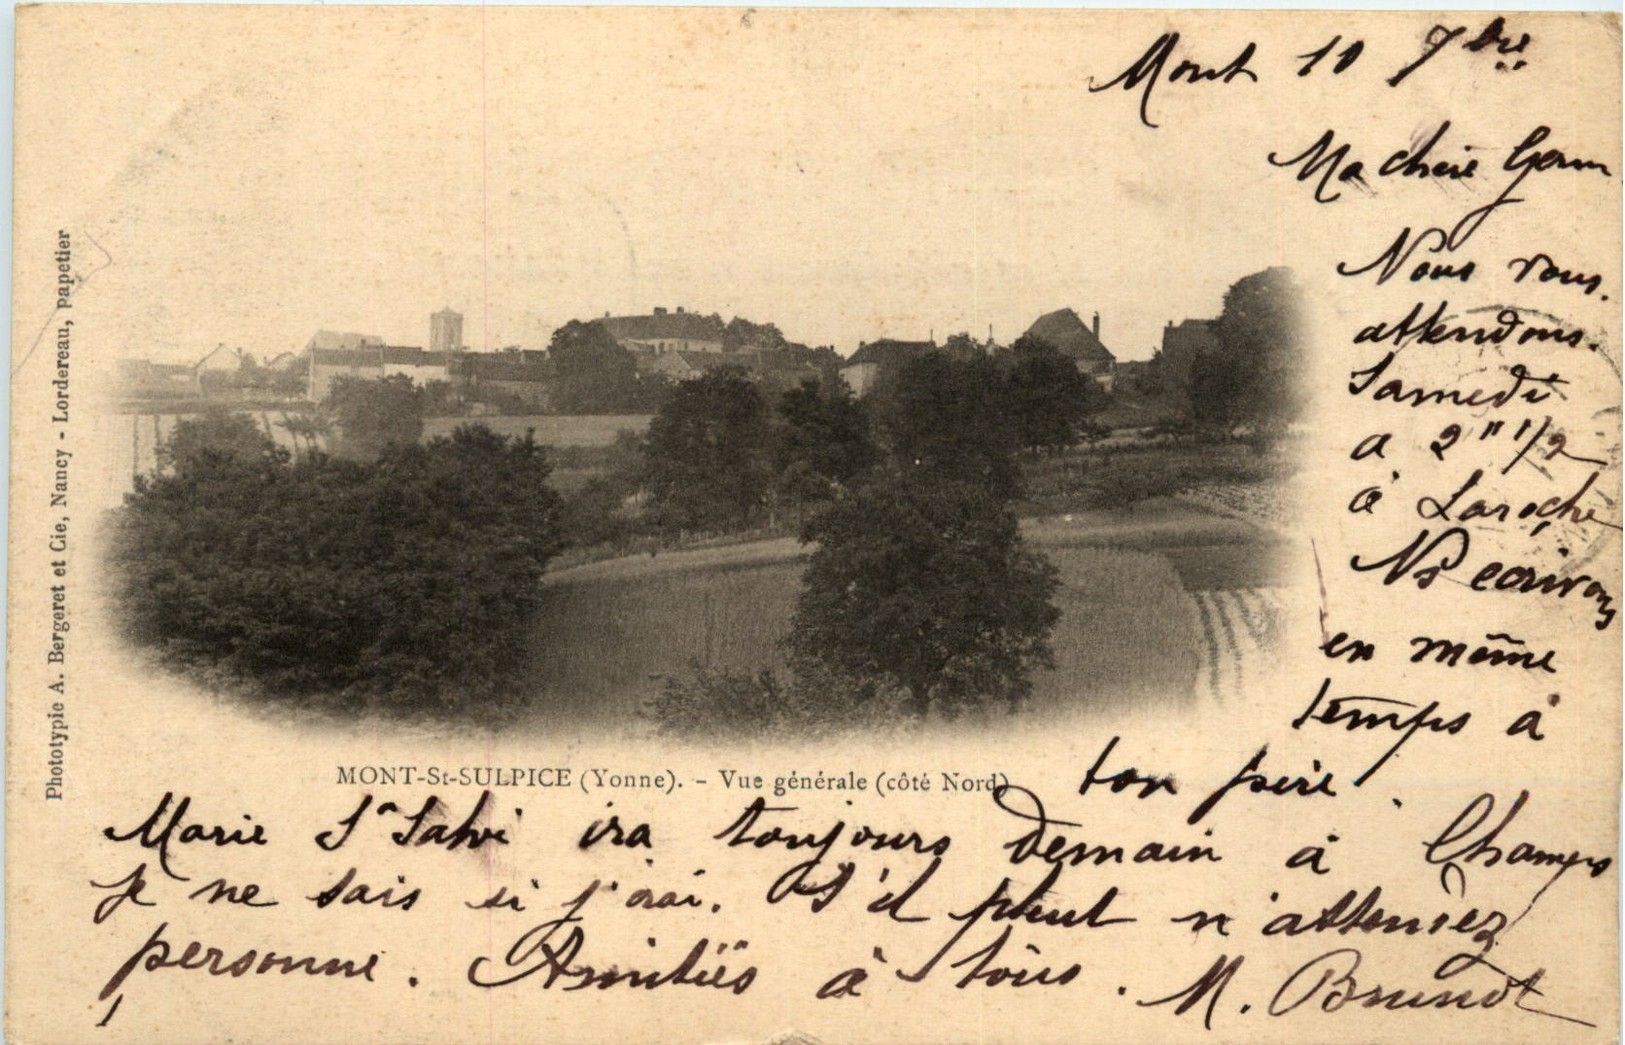 Mont 10 7bre
Ma chère Germ
Nous vous
attendons
Samedi
a 2" 1/2
à Laroche
Ns ecrivons
en même
temps à
ton père.
Phototypie A. Bergeret et Cie, Nancy - Lordereau, papetier
MONT-St-SULPICE (Yonne). - Vue générale (côté Nord)
Marie St ira toujours demain à Champs
je ne sais si j'irai. S'il pleut n'attendez
personne. Amitiés à tous. M. Brunot